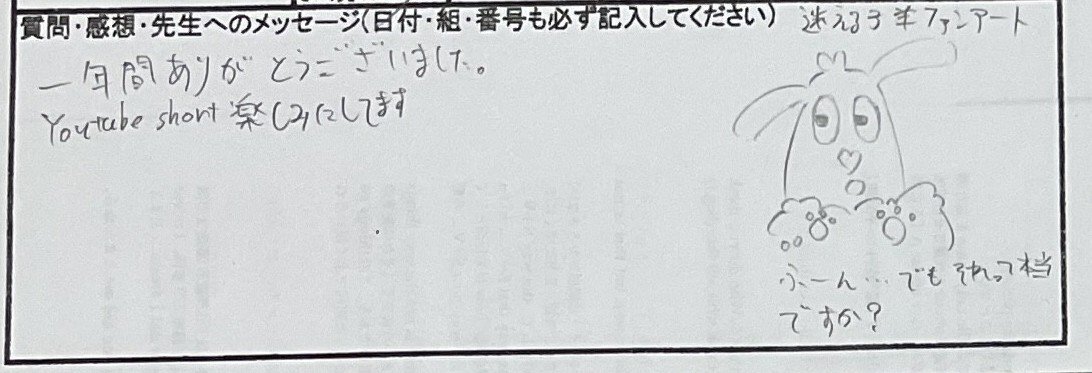 質問・感想・先生へのメッセージ(日付・組・番号も必ず記入してください)
迷える子羊ファンアート
一年間ありがとうございました。
Youtube short 楽しみにしてます
ふーん…でもそれって本当
ですか?